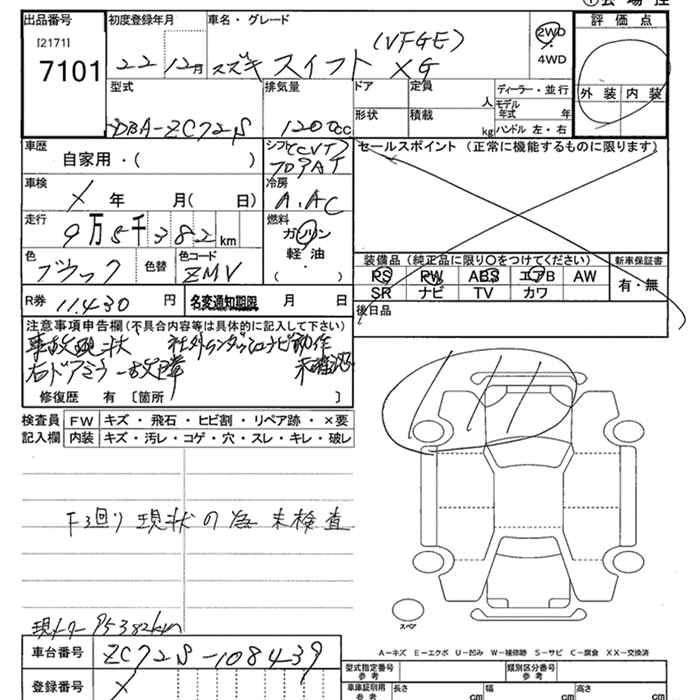 出品番号 初度登録年月 車名・グレード 評価点
[2171]
7101
22 12月 スズキ スイフト (VFGE) XG
2WD
4WD
外装 内装
型式 排気量 ドア 定員 人 ディーラー・並行
形状 積載 kg モデル年式 年
ハンドル 左・右
DBA-ZC72S 1200cc
車歴 シフト (CVT) セールスポイント (正常に機能するものに限ります)
自家用・( ) フロアAT
車検 冷房
X 年 月( 日) A.AC
走行 燃料
9万5千382km ガソリン
軽油
( )
色 色替 色コード
ブラック ZMV
装備品 (純正品に限り○をつけてください) 新車保証書
PS PW ABS エアB AW 有・無
SR ナビ TV カワ
R券 11.430 円 名変通知期限 月 日
後日品
注意事項申告欄(不具合内容等は具体的に記入して下さい)
事故現状 社外ワンダッシュナビ動作
右ドアミラー故障 未確認
修復歴 有〔箇所 〕
検査員 FW キズ・飛石・ヒビ割・リペア跡・×要
記入欄 内装 キズ・汚レ・コゲ・穴・スレ・キレ・破レ
下3回り現状の為未検査
現メーター 95382km
スペア
A－キズ E－エクボ U－凹み W－補修跡 S－サビ C－腐食 XX－交換済
車台番号 ZC72S-108439
型式指定番号 参考 類別区分番号 参考
登録番号 X
車庫証明用 参考 長さ cm 幅 cm 高さ cm